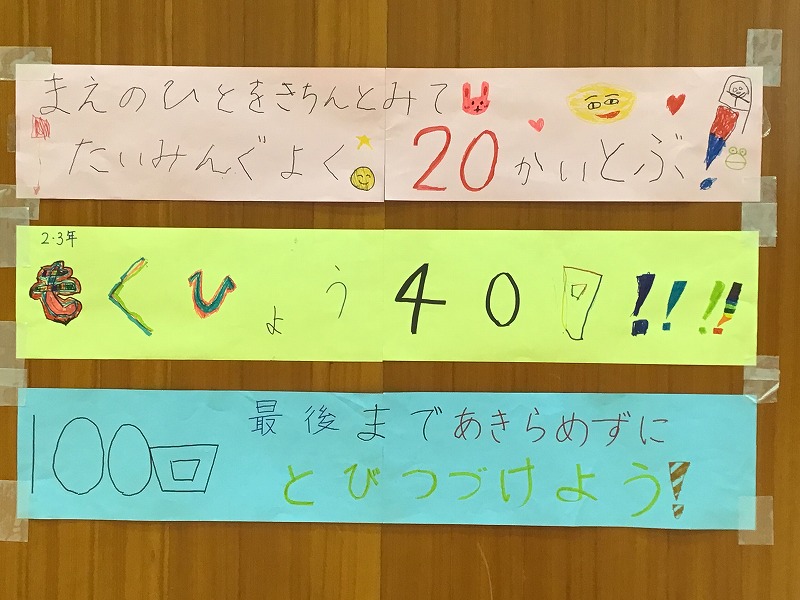 まえのひとをきちんとみて
たいみんぐよく 20かいとぶ!
2・3年
もくひょう40回!!!!
最後まであきらめずに
100回 とびつづけよう!